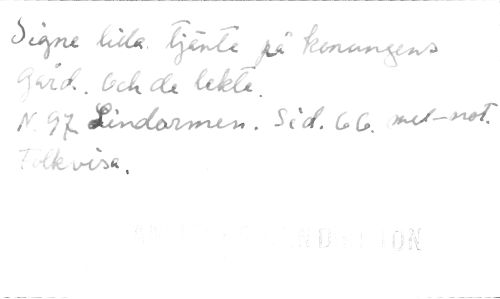 Signe lilla tjänte på konungens
gård. Och de lekte.
N. 97 Lindormen. Sid. 66. mel-not.
Folkvisa.